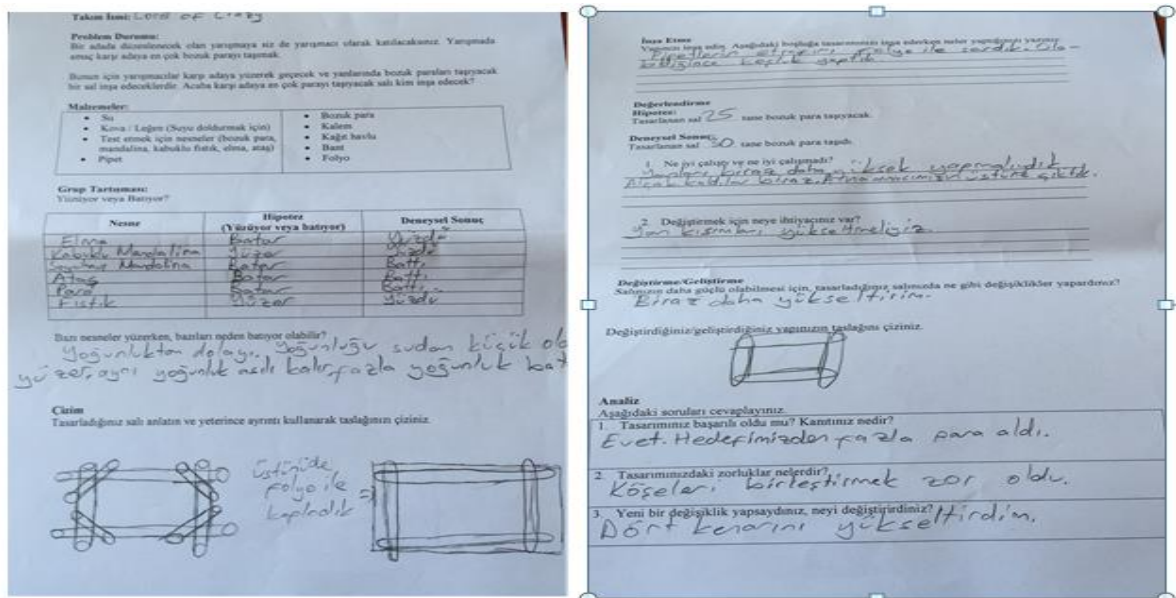 Takım İsmi: Lord of Crazy
Problem Durumu:
Bir adada düzenlenecek olan yarışmaya siz de yarışmacı olarak katılacaksınız. Yarışmada
amaç karşı adaya en çok bozuk parayı taşımak.
Bunun için yarışmacılar karşı adaya yüzerek geçecek ve yanlarında bozuk paraları taşıyacak
bir sal inşa edeceklerdir. Acaba karşı adaya en çok parayı taşıyacak salı kim inşa edecek?
Malzemeler:
• Su
• Kova / Leğen (Suyu doldurmak için)
• Test etmek için nesneler (bozuk para,
mandalina, kabuklu fıstık, elma, ataş)
• Pipet
• Bozuk para
• Kalem
• Kağıt havlu
• Bant
• Folyo
Grup Tartışması:
Yüzüyor veya Batıyor?
Nesne Hipotez Deneysel Sonuç
(Yüzüyor veya batıyor)
Elma Batar Yüzdü
Kabuklu Mandalina Yüzer Yüzdü
Mandalina Batar Battı
Ataş Batar Battı
Para Batar Battı
Fıstık Yüzer Yüzdü
Bazı nesneler yüzerken, bazıları neden batıyor olabilir?
Yoğunluktan dolayı. Yoğunluğu sudan küçük
yüzer, aynı yoğunluk asılı kalır, fazla yoğunluk bat
Çizim
Tasarladığınız salı anlatın ve yeterince ayrıntı kullanarak taslağının çiziniz.
üstünüde
folyo ile
kapladık
=
İnşa Etme
Yapınızı inşa edin. Aşağıdaki boşluğa tasarımınızı inşa ederken neler yaptığınızı yazınız.
Pipetlerin etrafını folyo ile sardık.
boşluk yaptık
Değerlendirme
Hipotez:
Tasarlanan sal 25 tane bozuk para taşıyacak.
Deneysel Sonuç:
Tasarlanan sal 30 tane bozuk para taşıdı.
1. Ne iyi çalıştı ve ne iyi çalışmadı?
biraz daha yüksek yapmalıydık
Alçak kaldılar biraz. Ama amacımızın üstüne çıktık.
2. Değiştirmek için neye ihtiyacınız var?
Yan kısımları yükseltmeliyiz.
Değiştirme/Geliştirme
Salınızın daha güçlü olabilmesi için, tasarladığınız salınızda ne gibi değişiklikler yapardınız?
Biraz daha yükseltirim.
Değiştirdiğiniz/geliştirdiğiniz yapınızın taslağını çiziniz.
Analiz
Aşağıdaki soruları cevaplayınız.
1. Tasarımınız başarılı oldu mu? Kanıtınız nedir?
Evet. Hedefimizden fazla para aldı.
2. Tasarımınızdaki zorluklar nelerdir?
Köşeleri birleştirmek zor oldu.
3. Yeni bir değişiklik yapsaydınız, neyi değiştirirdiniz?
Dört kenarını yükseltirdim.